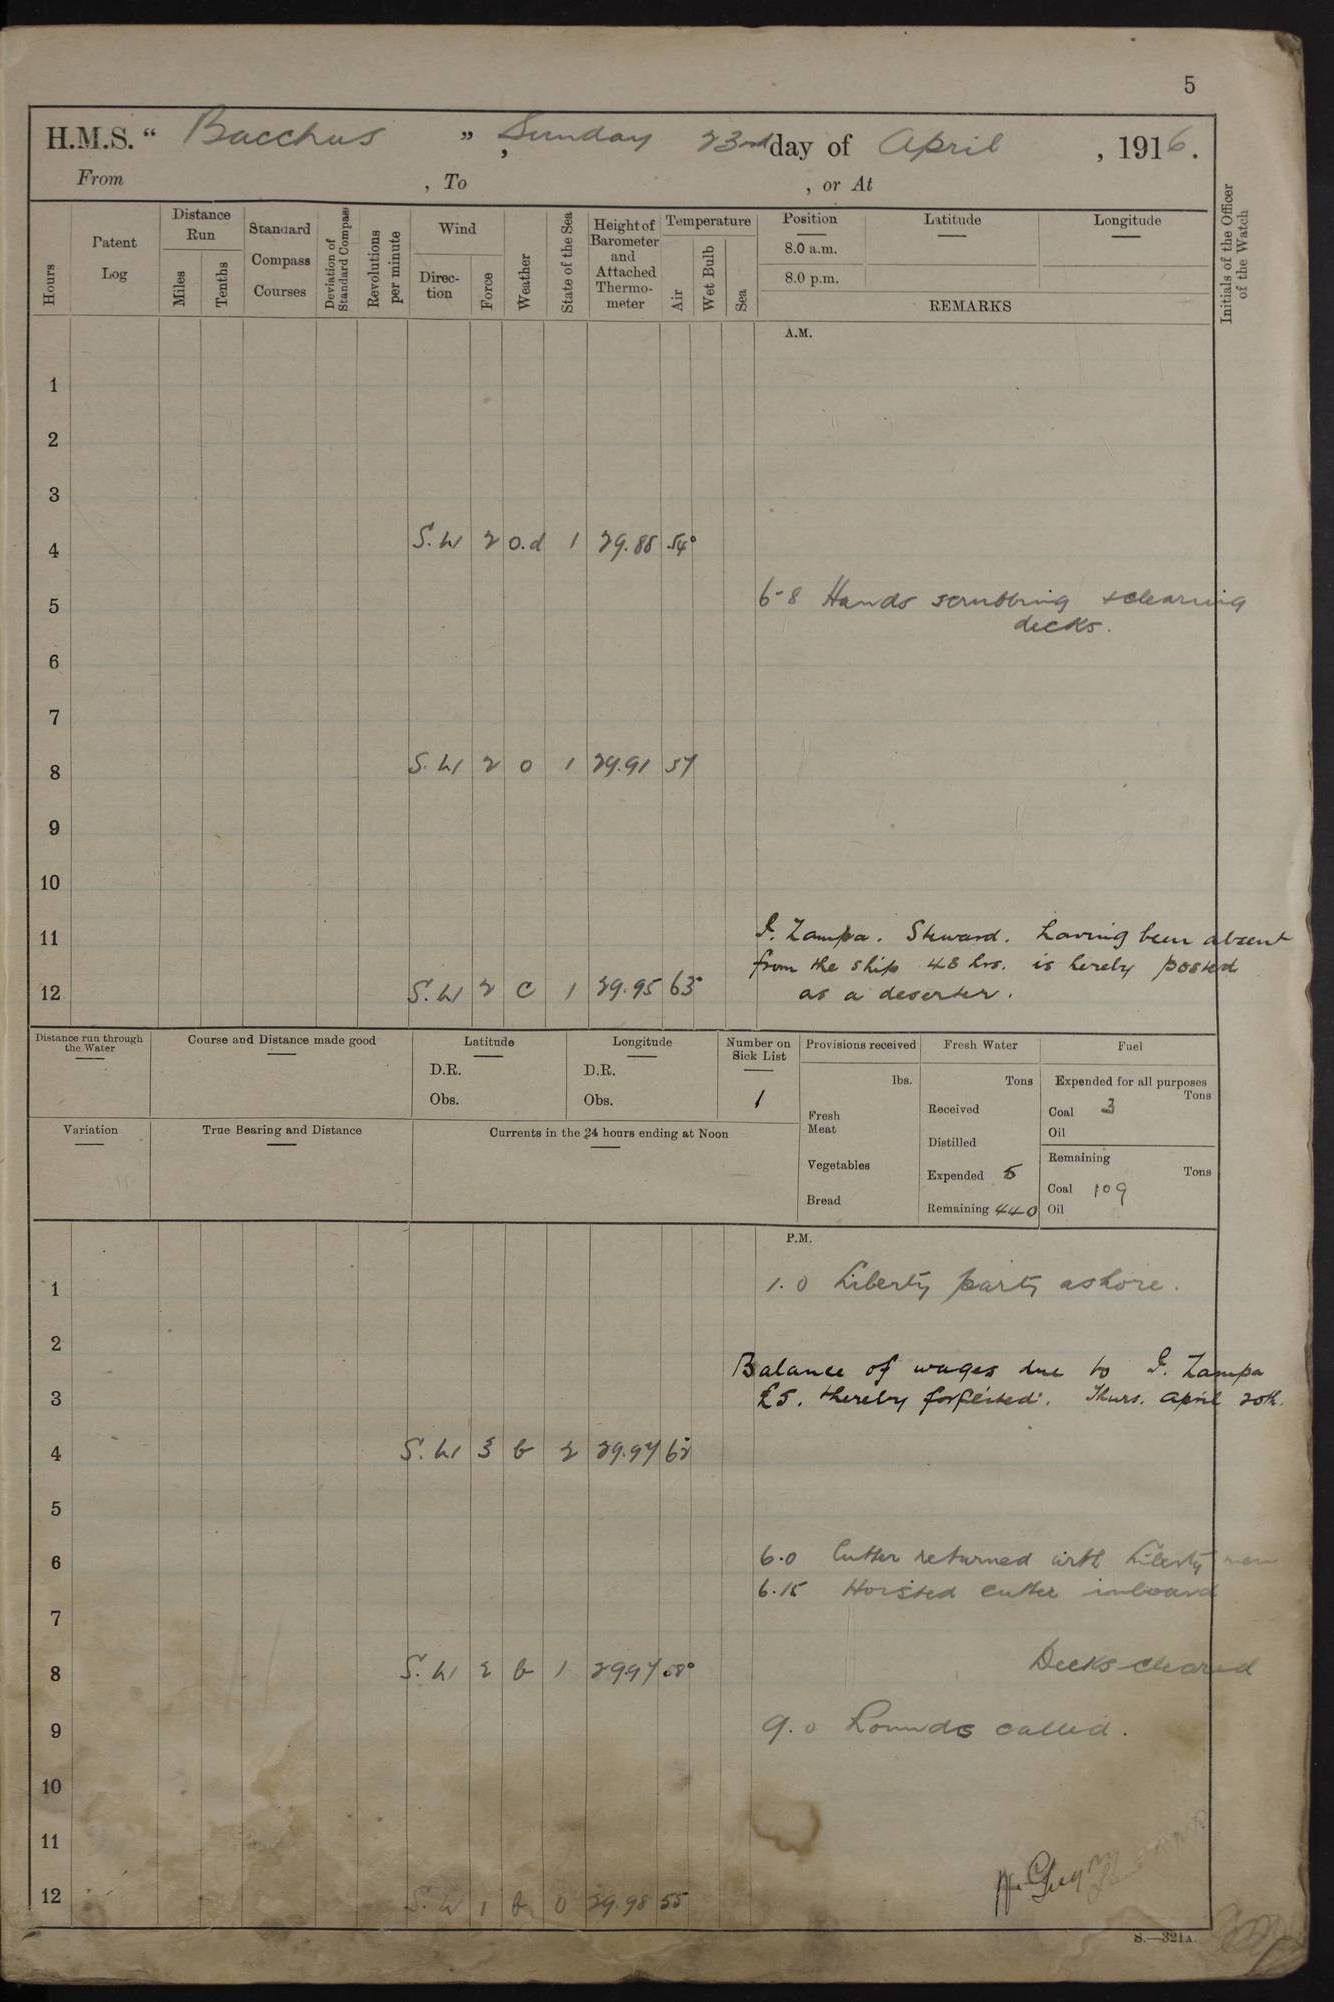 5
H.M.S. “ Bacchus ” , Sunday 23rd day of April , 1916.
From , To , or At
Hours
Patent Log
Distance Run
Miles
Tenths
Standard Compass Courses
Deviation of Standard Compass
Revolutions per minute
Wind
Direc-tion
Force
Weather
State of the Sea
Height of Barometer and Attached Thermo-meter
Temperature
Air
Wet Bulb
Sea
Position Latitude Longitude
8.0 a.m.
8.0 p.m.
REMARKS
Initials of the Officer of the Watch
A.M.
1
2
3
4 S.W 2 o.d 1 29.88 54°
5 6-8 Hands scrubbing & cleaning
decks.
6
7
8 S.W 2 o 1 29.91 57
9
10
11 Zampa. Steward. having been absent
from the ship 48 hrs. is hereby posted
12 S.W 2 c 1 29.95 63° as a deserter.
Distance run through the Water
Course and Distance made good
Latitude
D.R.
Obs.
Longitude
D.R.
Obs.
Number on Sick List
1
Variation
True Bearing and Distance
Currents in the 24 hours ending at Noon
Provisions received
lbs.
Fresh Meat
Vegetables
Bread
Fresh Water
Tons
Received
Distilled
Expended 5
Remaining 440
Fuel
Expended for all purposes
Tons
Coal 3
Oil
Remaining
Tons
Coal 109
Oil
P.M.
1 1.0 Liberty party ashore.
2
Balance of wages due to Zampa
3 £5. thereby forfeited. Thurs. April 20th.
4 S.W 3 b 2 29.97 62
5
6 6.0 Cutter returned with Liberty men
6.15 Hoisted cutter inboard
7
8 S.W 2 b 1 29.97 58° Decks cleared
9 9.0 Rounds called.
10
11
12 S.W 1 b 0 29.98 55
S.—321A.